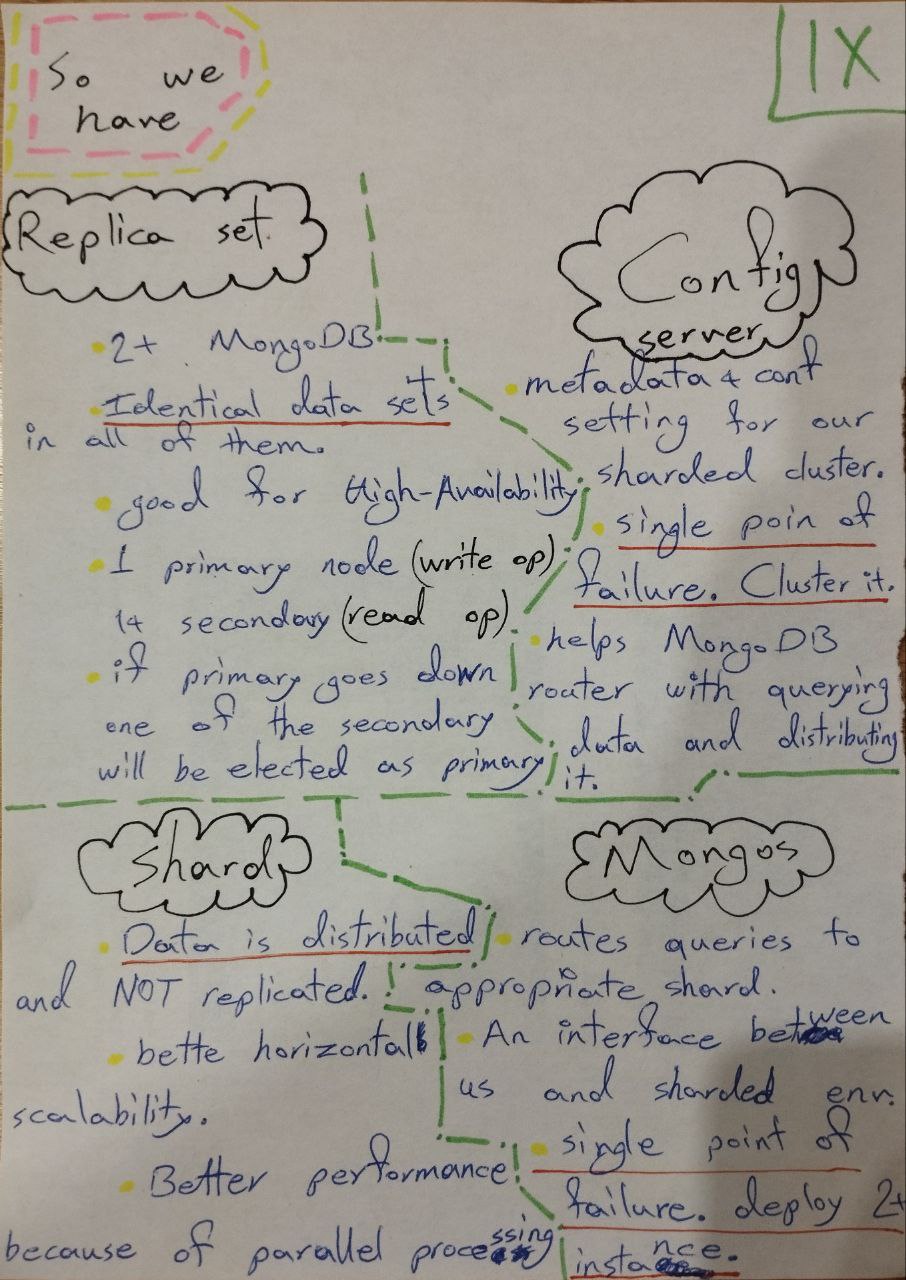 So we
have
IX
Replica set
2+ MongoDB
Identical data sets
in all of them.
good for High-Availability
1 primary node (write op)
1+ secondary (read op)
if primary goes down
one of the secondary
will be elected as primary
Config
server
metadata & conf
setting for our
sharded cluster.
single poin of
failure. Cluster it.
helps MongoDB
router with querying
data and distributing
it.
Shard
Data is distributed
and NOT replicated.
bette horizontal
scalability.
Better performance
because of parallel processing
Mongos
routes queries to
appropriate shard.
An interface between
us and sharded env.
single point of
failure. deploy 2+
instance.